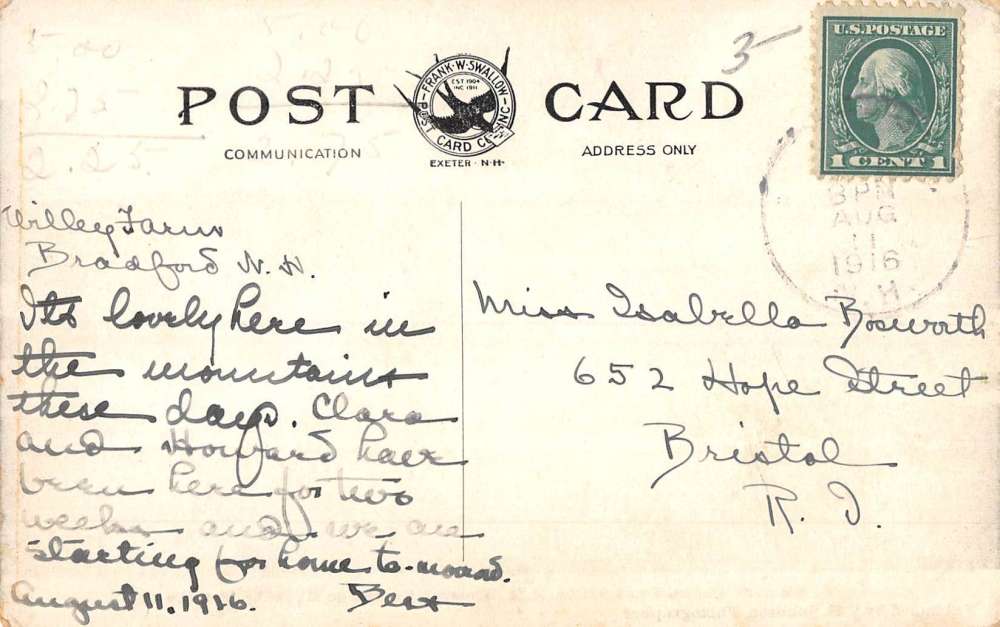 5.00
2.75
2.25
5.00
3-
POST CARD
FRANK·W·SWALLOW
EST 1904
INC 1911
POST CARD CO-INC
EXETER·N·H·
COMMUNICATION
ADDRESS ONLY
U.S. POSTAGE
1 CENT 1
3 PM
AUG
11
1916
N.H.
Willey Farm
Bradford N. H.
Its lovely here in
the mountains
these days. Clara
and Howard have
been here for two
weeks and we are
starting for home to-morrow.
August 11, 1916. Bert
Miss Isabella Bosworth
652 Hope Street
Bristol
R. I.